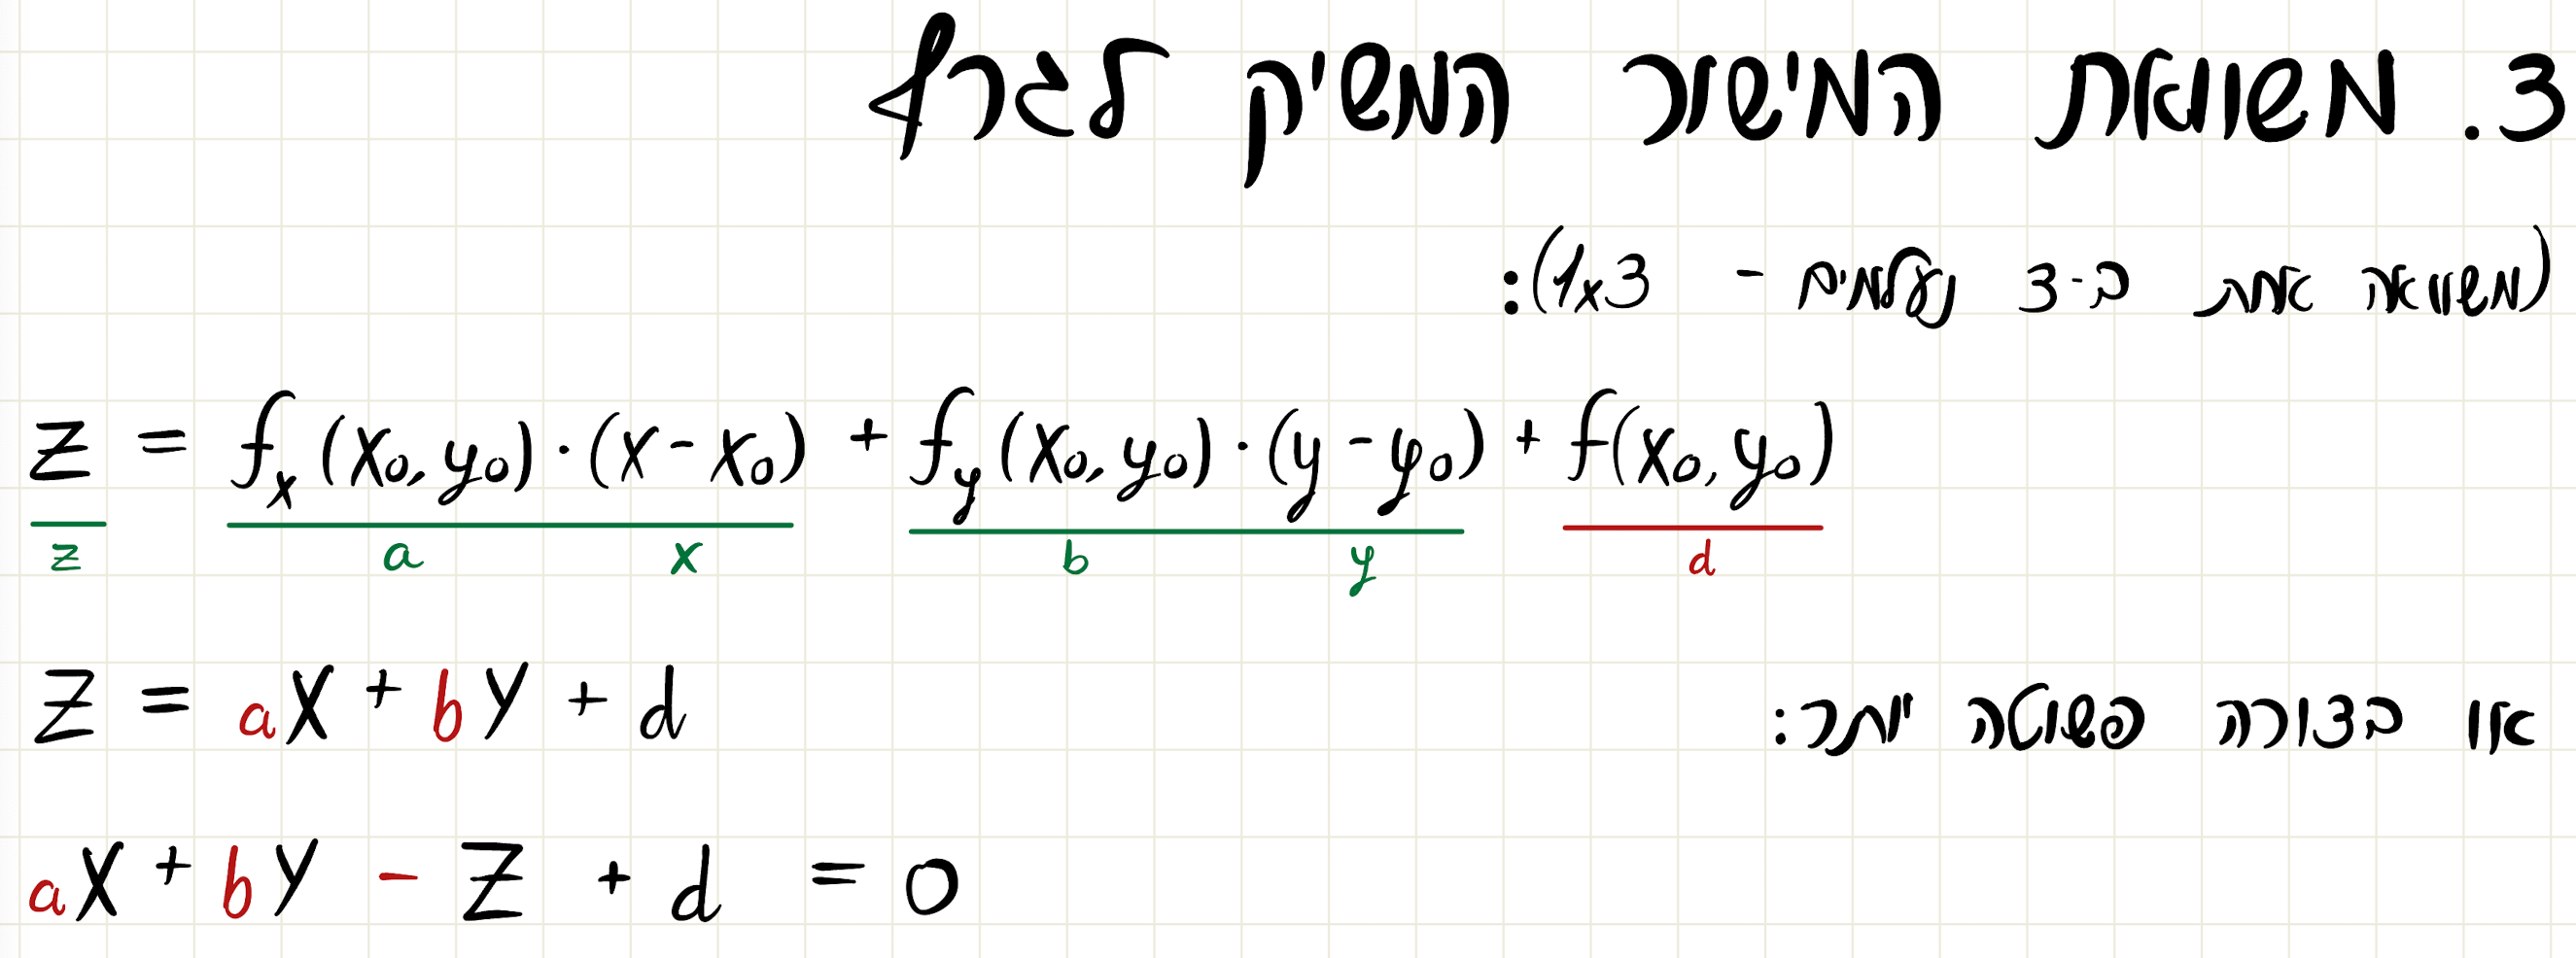 3. משוואת המישור המשיק לגרף
(משוואה אחת ב-3 נעלמים - 1x3):
z = fₓ(x₀,y₀)·(x-x₀) + f_y(x₀,y₀)·(y-y₀) + f(x₀,y₀)
z a x b y d
או בצורה פשוטה יותר: z = ax + by + d
ax + by - z + d = 0